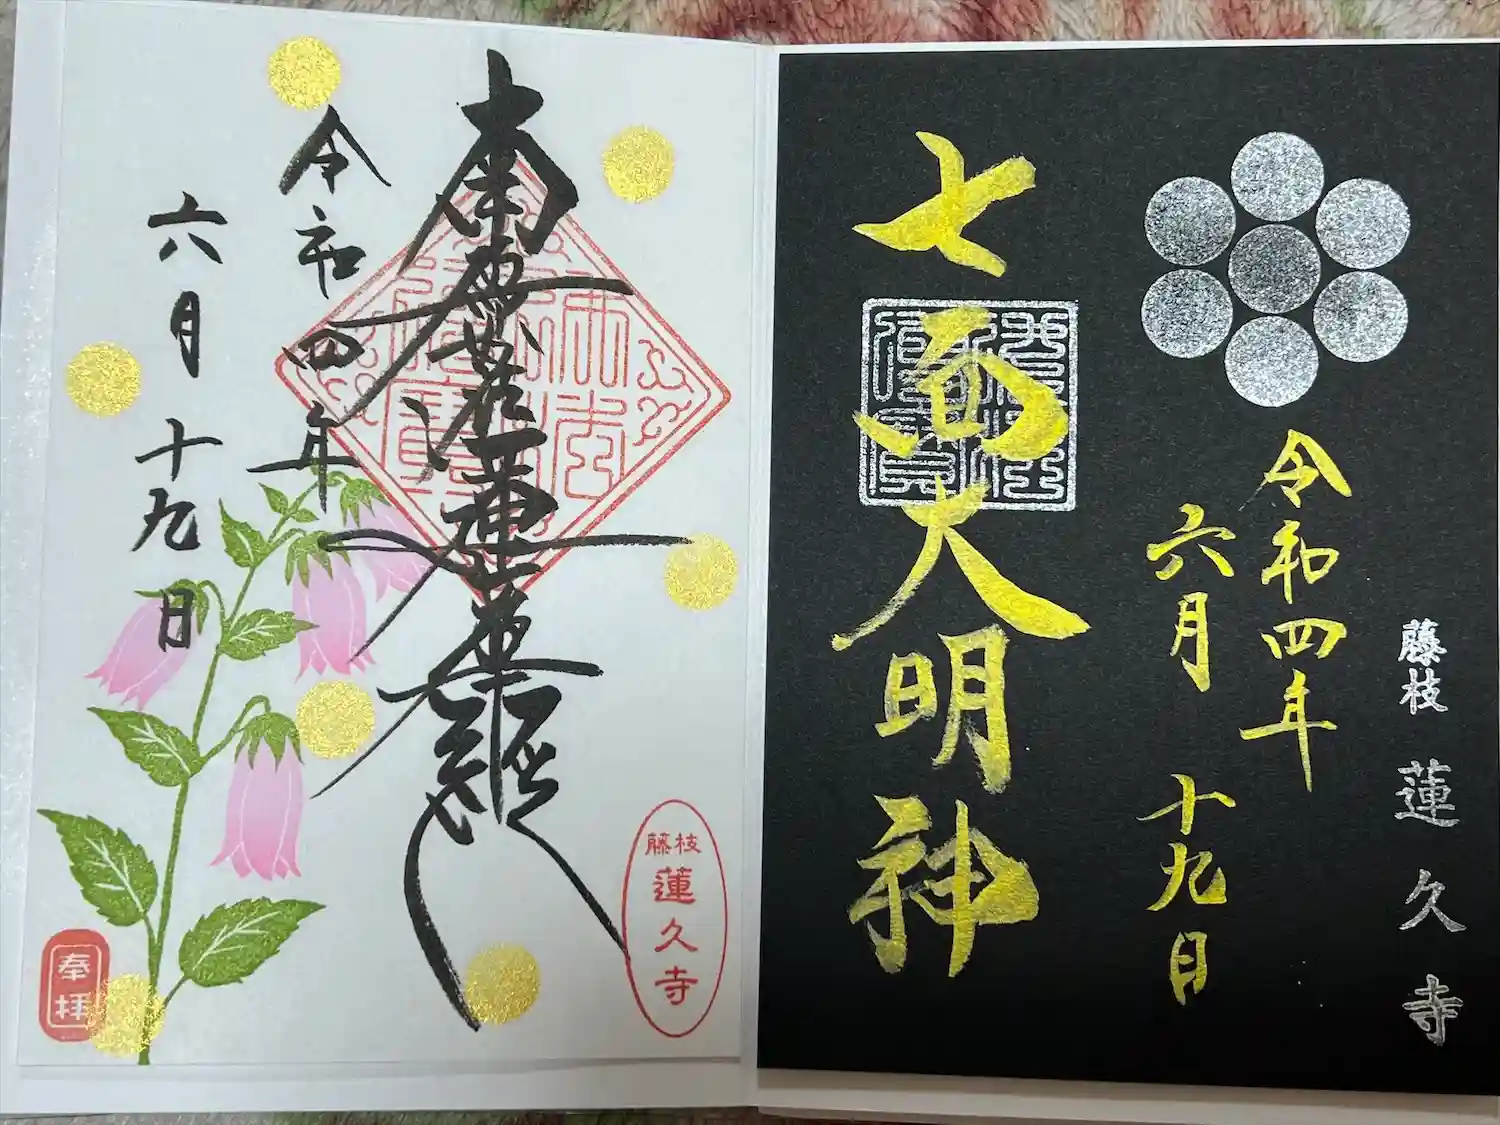 南無妙法蓮華経
令和四年
六月十九日
藤枝
蓮久寺
奉拝
藤枝 蓮久寺
令和四年
六月十九日
七面大明神